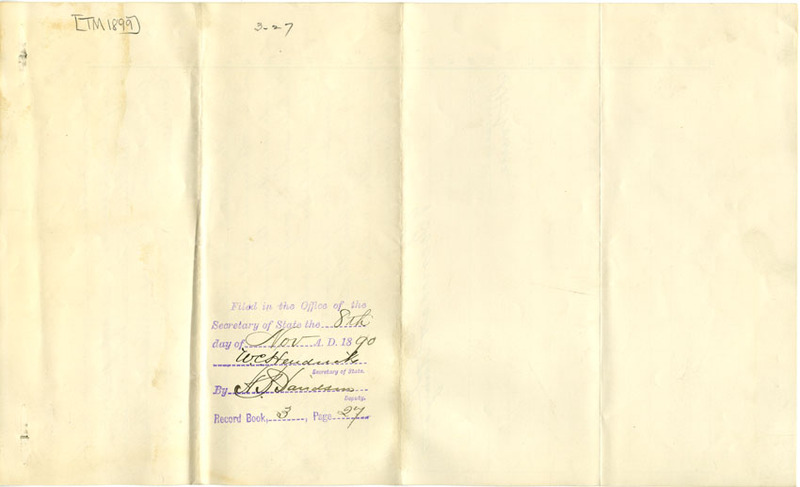 [TM 1899]
3-27
Filed in the Office of the
Secretary of State the 8th
day of Nov A. D. 1890
W C Hendricks
Secretary of State.
By
Deputy.
Record Book, 3, Page 27